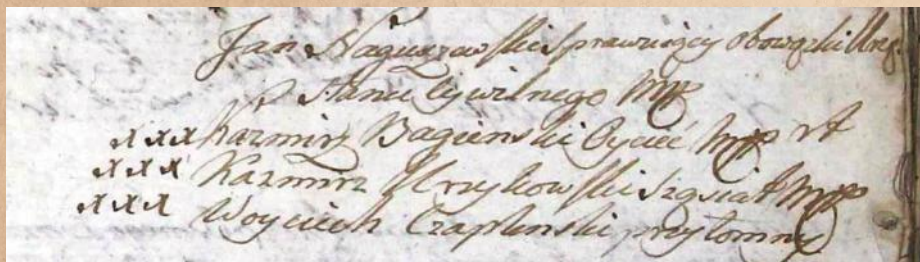 Jan Naguszewski sprawuiący obowązki Urzę.
Stanu Cywilnego Mp
xxx Kazmirz Bagienski Oycieć Mp
xxx Kazmirz Krzykowski Sząsiat Mp
xxx Woyciech Czaplinski przytomny